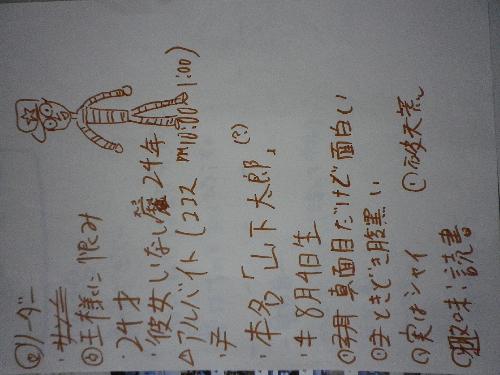 リーダー
王様に恨み
・24才
・彼女いない歴24年
アルバイト(ココス
・本名「山下太郎」(?)
8月4日生
真面目だけど面白い
ときどき腹黒い
実はシャイ
①破天荒
趣味:読書